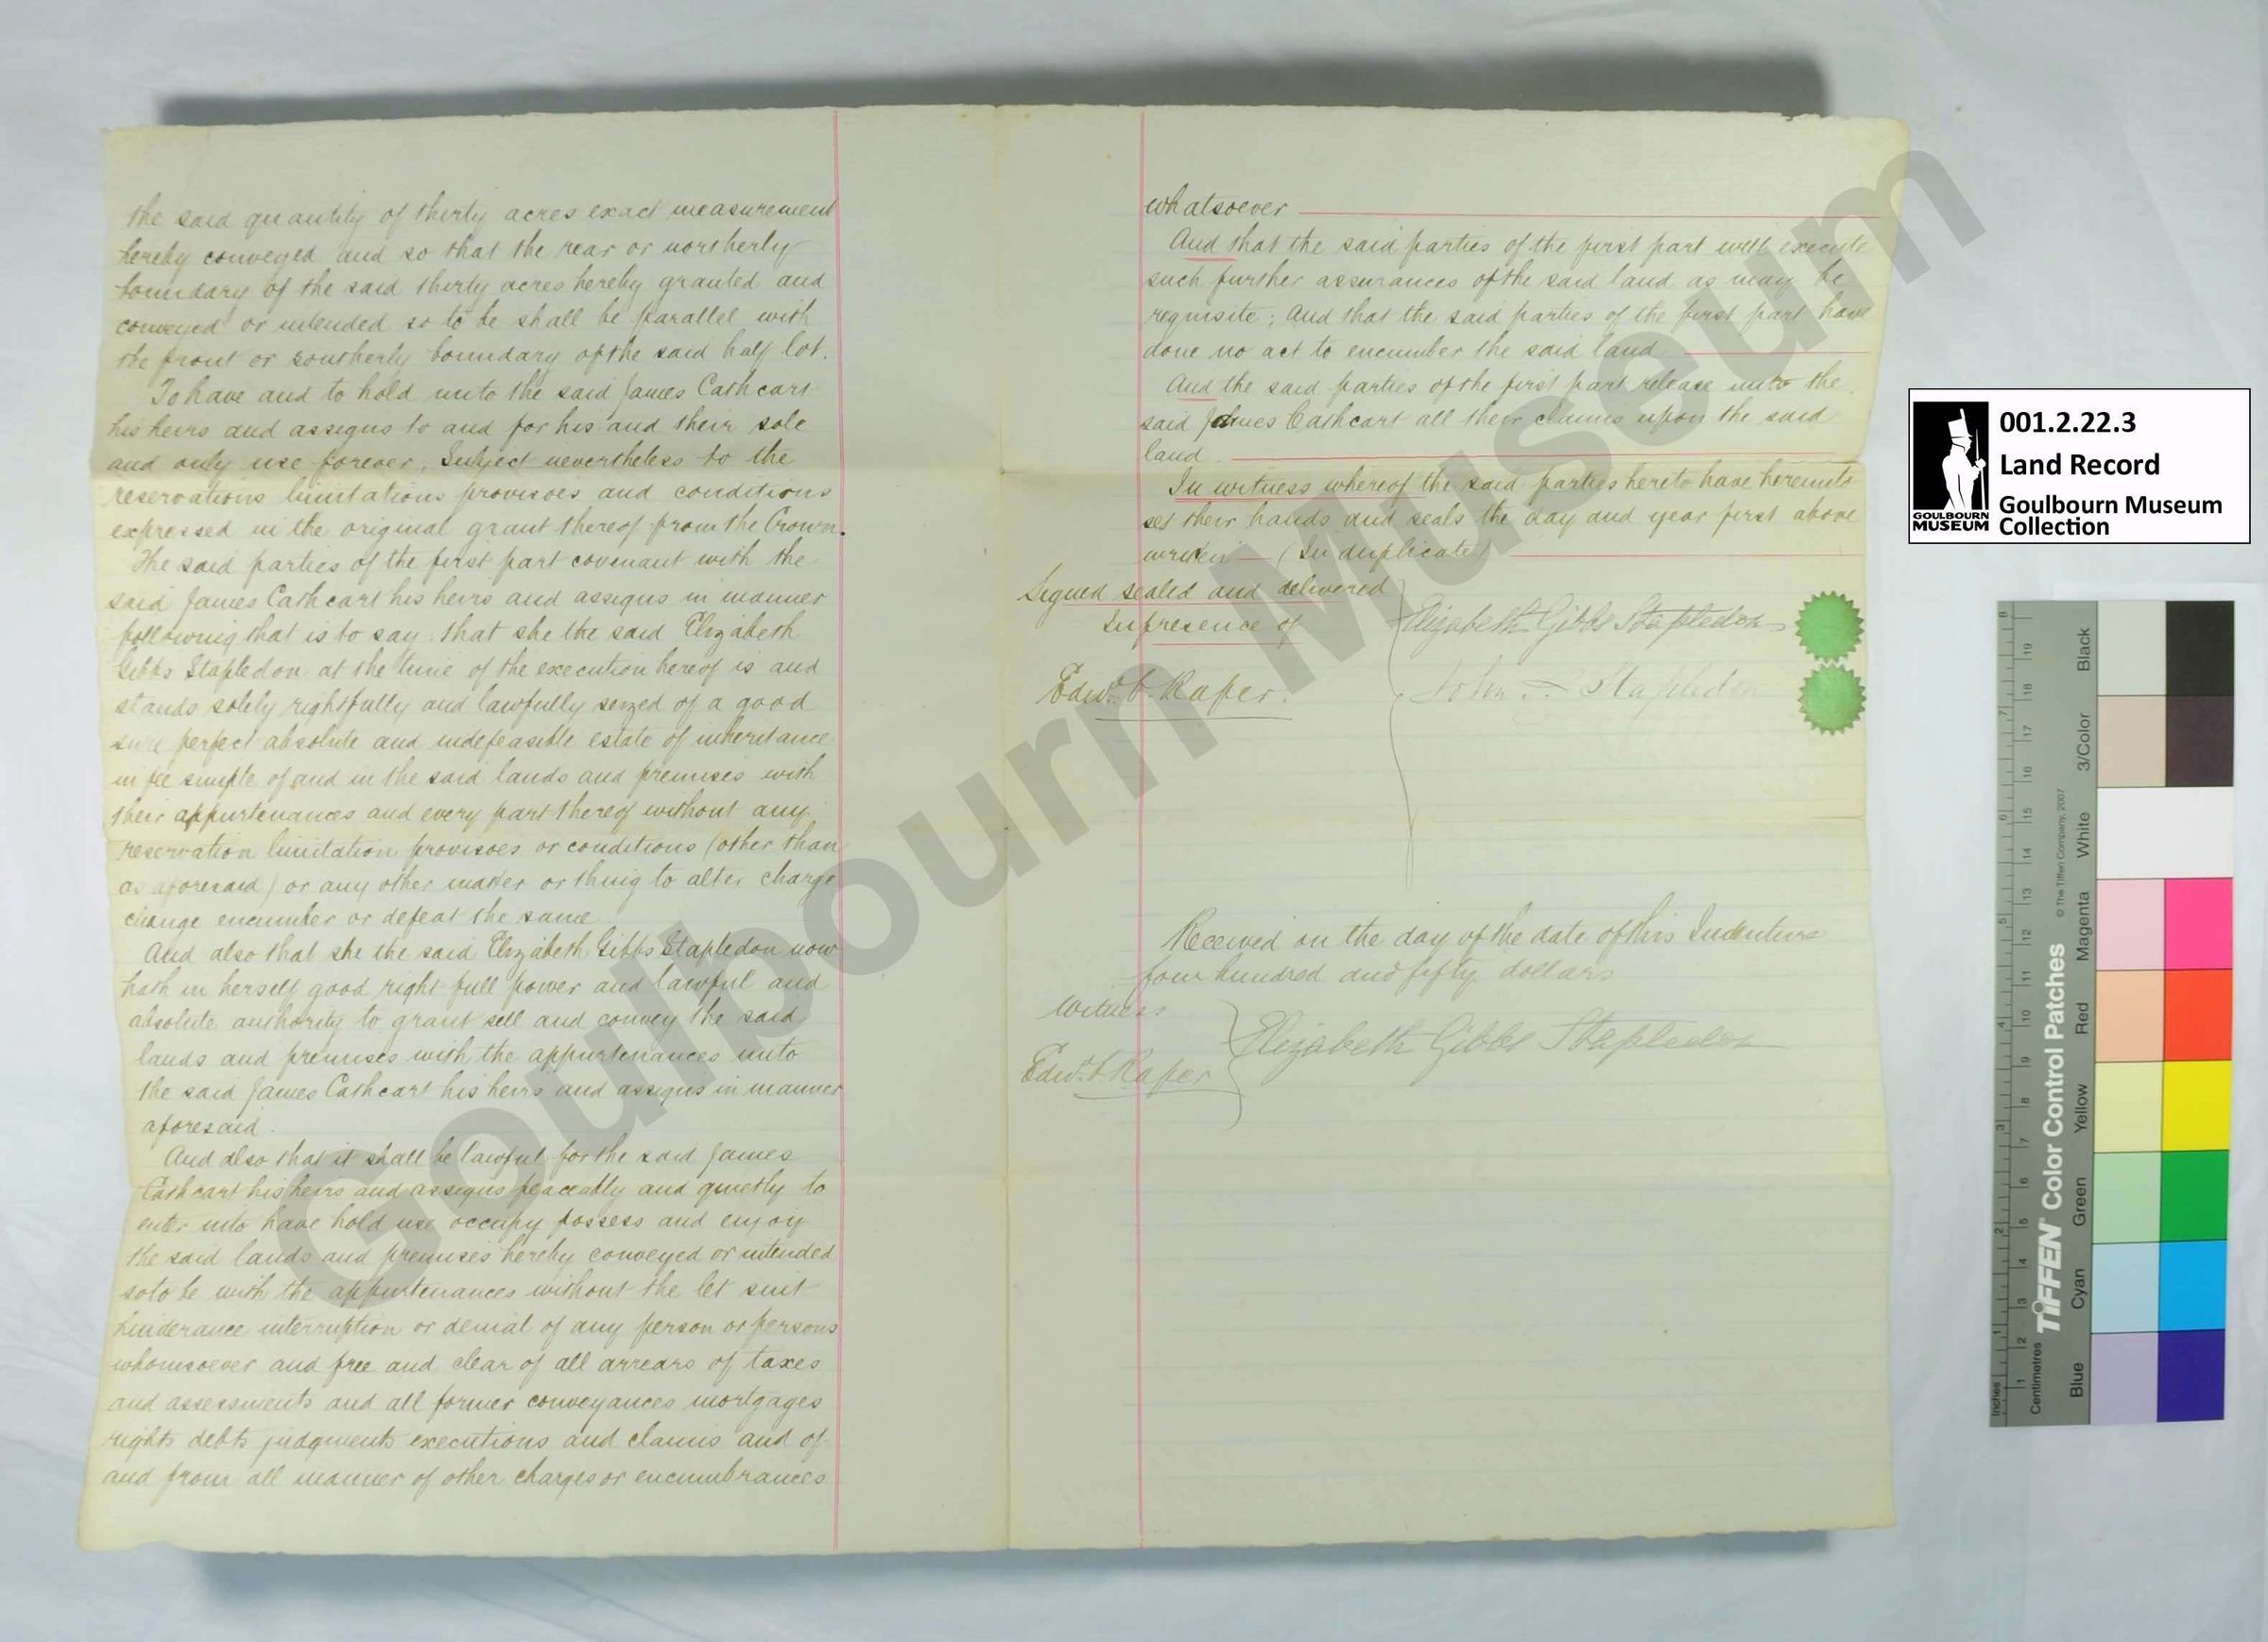 the said quantity of thirty acres exact measurement
hereby conveyed and so that the rear or northerly
boundary of the said thirty acres hereby granted and
conveyed or intended so to be shall be parallel with
the front or southerly boundary of the said half lot.
To have and to hold unto the said James Cathcart
his heirs and assigns to and for his and their sole
and only use forever, Subject nevertheless to the
reservations limitations provisoes and conditions
expressed in the original grant thereof from the Crown.
The said parties of the first part covenant with the
said James Cathcart his heirs and assigns in manner
following that is to say. that she the said Elizabeth
Gibbs Stapledon at the time of the execution hereof is and
stands solely rightfully and lawfully seized of a good
sure perfect absolute and indefeasible estate of inheritance
in fee simple of and in the said lands and premises with
their appurtenances and every part thereof without any
reservation limitation provisoes or conditions (other than
as aforesaid) or any other matter or thing to alter charge
change encumber or defeat the same
And also that she the said Elizabeth Gibbs Stapledon now
hath in herself good right full power and lawful and
absolute authority to grant sell and convey the said
lands and premises with the appurtenances unto
the said James Cathcart his heirs and assigns in manner
aforesaid.
And also that it shall be lawful for the said James
Cathcart his heirs and assigns peaceably and quietly to
enter into have hold use occupy possess and enjoy
the said lands and premises hereby conveyed or intended
so to be with the appurtenances without the let suit
hinderance interruption or denial of any person or persons
whomsoever and free and clear of all arrears of taxes
and assessments and all former conveyances mortgages
rights debts judgments executions and claims and of
and from all manner of other charges or encumbrances
whatsoever
And that the said parties of the first part will execute
such further assurances of the said land as may be
requisite; And that the said parties of the first part have
done no act to encumber the said land
And the said parties of the first part release unto the
said James Cathcart all their claims upon the said
land
In witness whereof the said parties hereto have hereunto
set their hands and seals the day and year first above
written — (In duplicate)
Signed sealed and delivered
In presence of
Elizabeth Gibbs Stapledon
Edw. Raper.
John Stapledon
Received on the day of the date of this Indenture
four hundred and fifty dollars
Witness
Elizabeth Gibbs Stapledon
Edw. Raper
Goulbourn Museum
GOULBOURN
MUSEUM
001.2.22.3
Land Record
Goulbourn Museum
Collection
TIFFEN Color Control Patches
© The Tiffen Company, 2007
Inches
Centimetres
Blue
Cyan
Green
Yellow
Red
Magenta
White
3/Color
Black